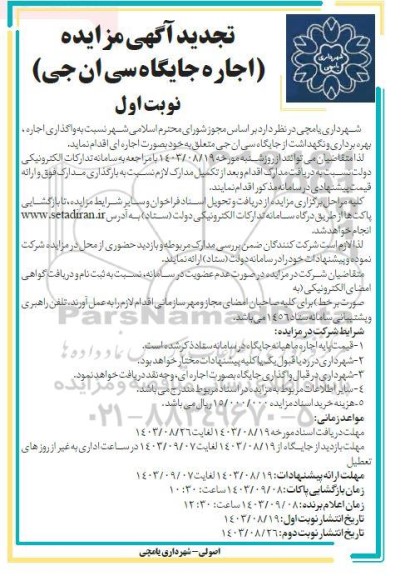 تجدید آگهی مزایده
(اجاره جایگاه سی ان جی)
نوبت اول
شهرداری یامچی
شهرداری یامچی در نظر دارد بر اساس مجوز شورای محترم اسلامی شهر نسبت به واگذاری اجاره ،
بهره برداری و نگهداشت از جایگاه سی ان جی متعلق به خود بصورت اجاره ای اقدام نماید.
لذا متقاضیان می توانند از روز شنبه مورخه ۱۴۰۳/۰۸/۱۹ با مراجعه به سامانه تدارکات الکترونیکی
دولت نسبت به دریافت مدارک اقدام و بعد از تکمیل مدارک لازم نسبت به بارگذاری مدارک فوق و ارائه
قیمت پیشنهادی در سامانه مذکور اقدام نمایند.
کلیه مراحل برگزاری مزایده از دریافت و تحویل اسناد فراخوان و سایر شرایط مزایده، تا بازگشایی
پاکت ها از طریق درگاه سامانه تدارکات الکترونیکی دولت (ستاد) به آدرس www.setadiran.ir
انجام خواهد شد.
لذا لازم است شرکت کنندگان ضمن بررسی مدارک مربوطه و بازدید حضوری از محل در مزایده شرکت
نموده و پیشنهادات خود را در سامانه دولت (ستاد) ارائه نمایند.
متقاضیان شرکت در مزایده در صورت عدم عضویت در سامانه، نسبت به ثبت نام و دریافت گواهی
امضای الکترونیکی (به
صورت برخط) برای کلیه صاحبان امضای مجاز و مهر سازمانی اقدام لازم را به عمل آورند. تلفن راهبری و
پشتیبانی سامانه ستاد ۱۴۵۶ می باشد.
شرایط شرکت در مزایده:
۱-قیمت پایه اجاره ماهیانه جایگاه در سامانه ستاد ذکر شده است.
۲-شهرداری در رد یا قبول یک یا کلیه پیشنهادات مختار خواهد بود.
۳-شهرداری در قبال واگذاری جایگاه بصورت اجاره ای، وجه نقد دریافت خواهد نمود.
۴-سایر اطلاعات مربوط به مزایده در اسناد مربوط مندرج می باشد.
۵-هزینه خرید اسناد مزایده ۱۵/۰۰۰/۰۰۰ ریال می باشد.
مواعد زمانی:
مهلت دریافت اسناد مورخه ۱۴۰۳/۰۸/۱۹ لغایت ۱۴۰۳/۰۸/۲۶
مهلت بازدید از جایگاه از ۱۴۰۳/۰۸/۱۹ لغایت ۱۴۰۳/۰۹/۰۷ در ساعات اداری به غیر از روز های
تعطیل
مهلت ارائه پیشنهادات: ۱۴۰۳/۰۸/۱۹ لغایت ۱۴۰۳/۰۹/۰۷
زمان بازگشایی پاکات: ۱۴۰۳/۰۹/۰۸ ساعت: ۱۰:۳۰
زمان اعلام برنده: ۱۴۰۳/۰۹/۰۸ ساعت: ۱۲:۳۰
تاریخ انتشار نوبت اول: ۱۴۰۳/۰۸/۱۹
تاریخ انتشار نوبت دوم: ۱۴۰۳/۰۸/۲۶
اصولی - شهرداری یامچی